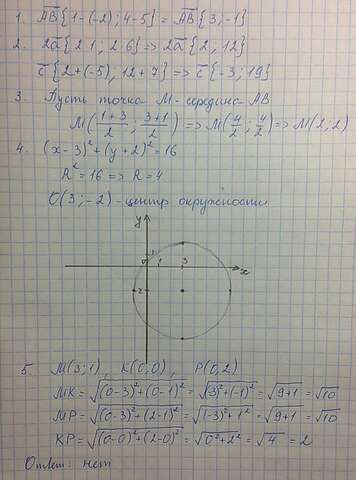 1. AB{1-(-2); 4-5} = AB{3;-1}
2. 2a{2·1; 2·6} => 2a{2, 12}
c{2+(-5), 12+7} => c{-3; 19}
3. Пусть точка M-середина AB
M(1+3/2; 3+1/2) => M(4/2; 4/2) => M(2,2)
4. (x-3)²+(y+2)²=16
R²=16 => R=4
O(3;-2)-центр окружности
y
1 3 x
-2
5. M(3;1), K(0;0), P(0,2)
MK=√(0-3)²+(0-1)²=√(3)²+(-1)²=√9+1=√10
MP=√(0-3)²+(2-1)²=√(-3)²+1²=√9+1=√10
KP=√(0-0)²+(2-0)²=√0²+2²=√4=2
Ответ: нет